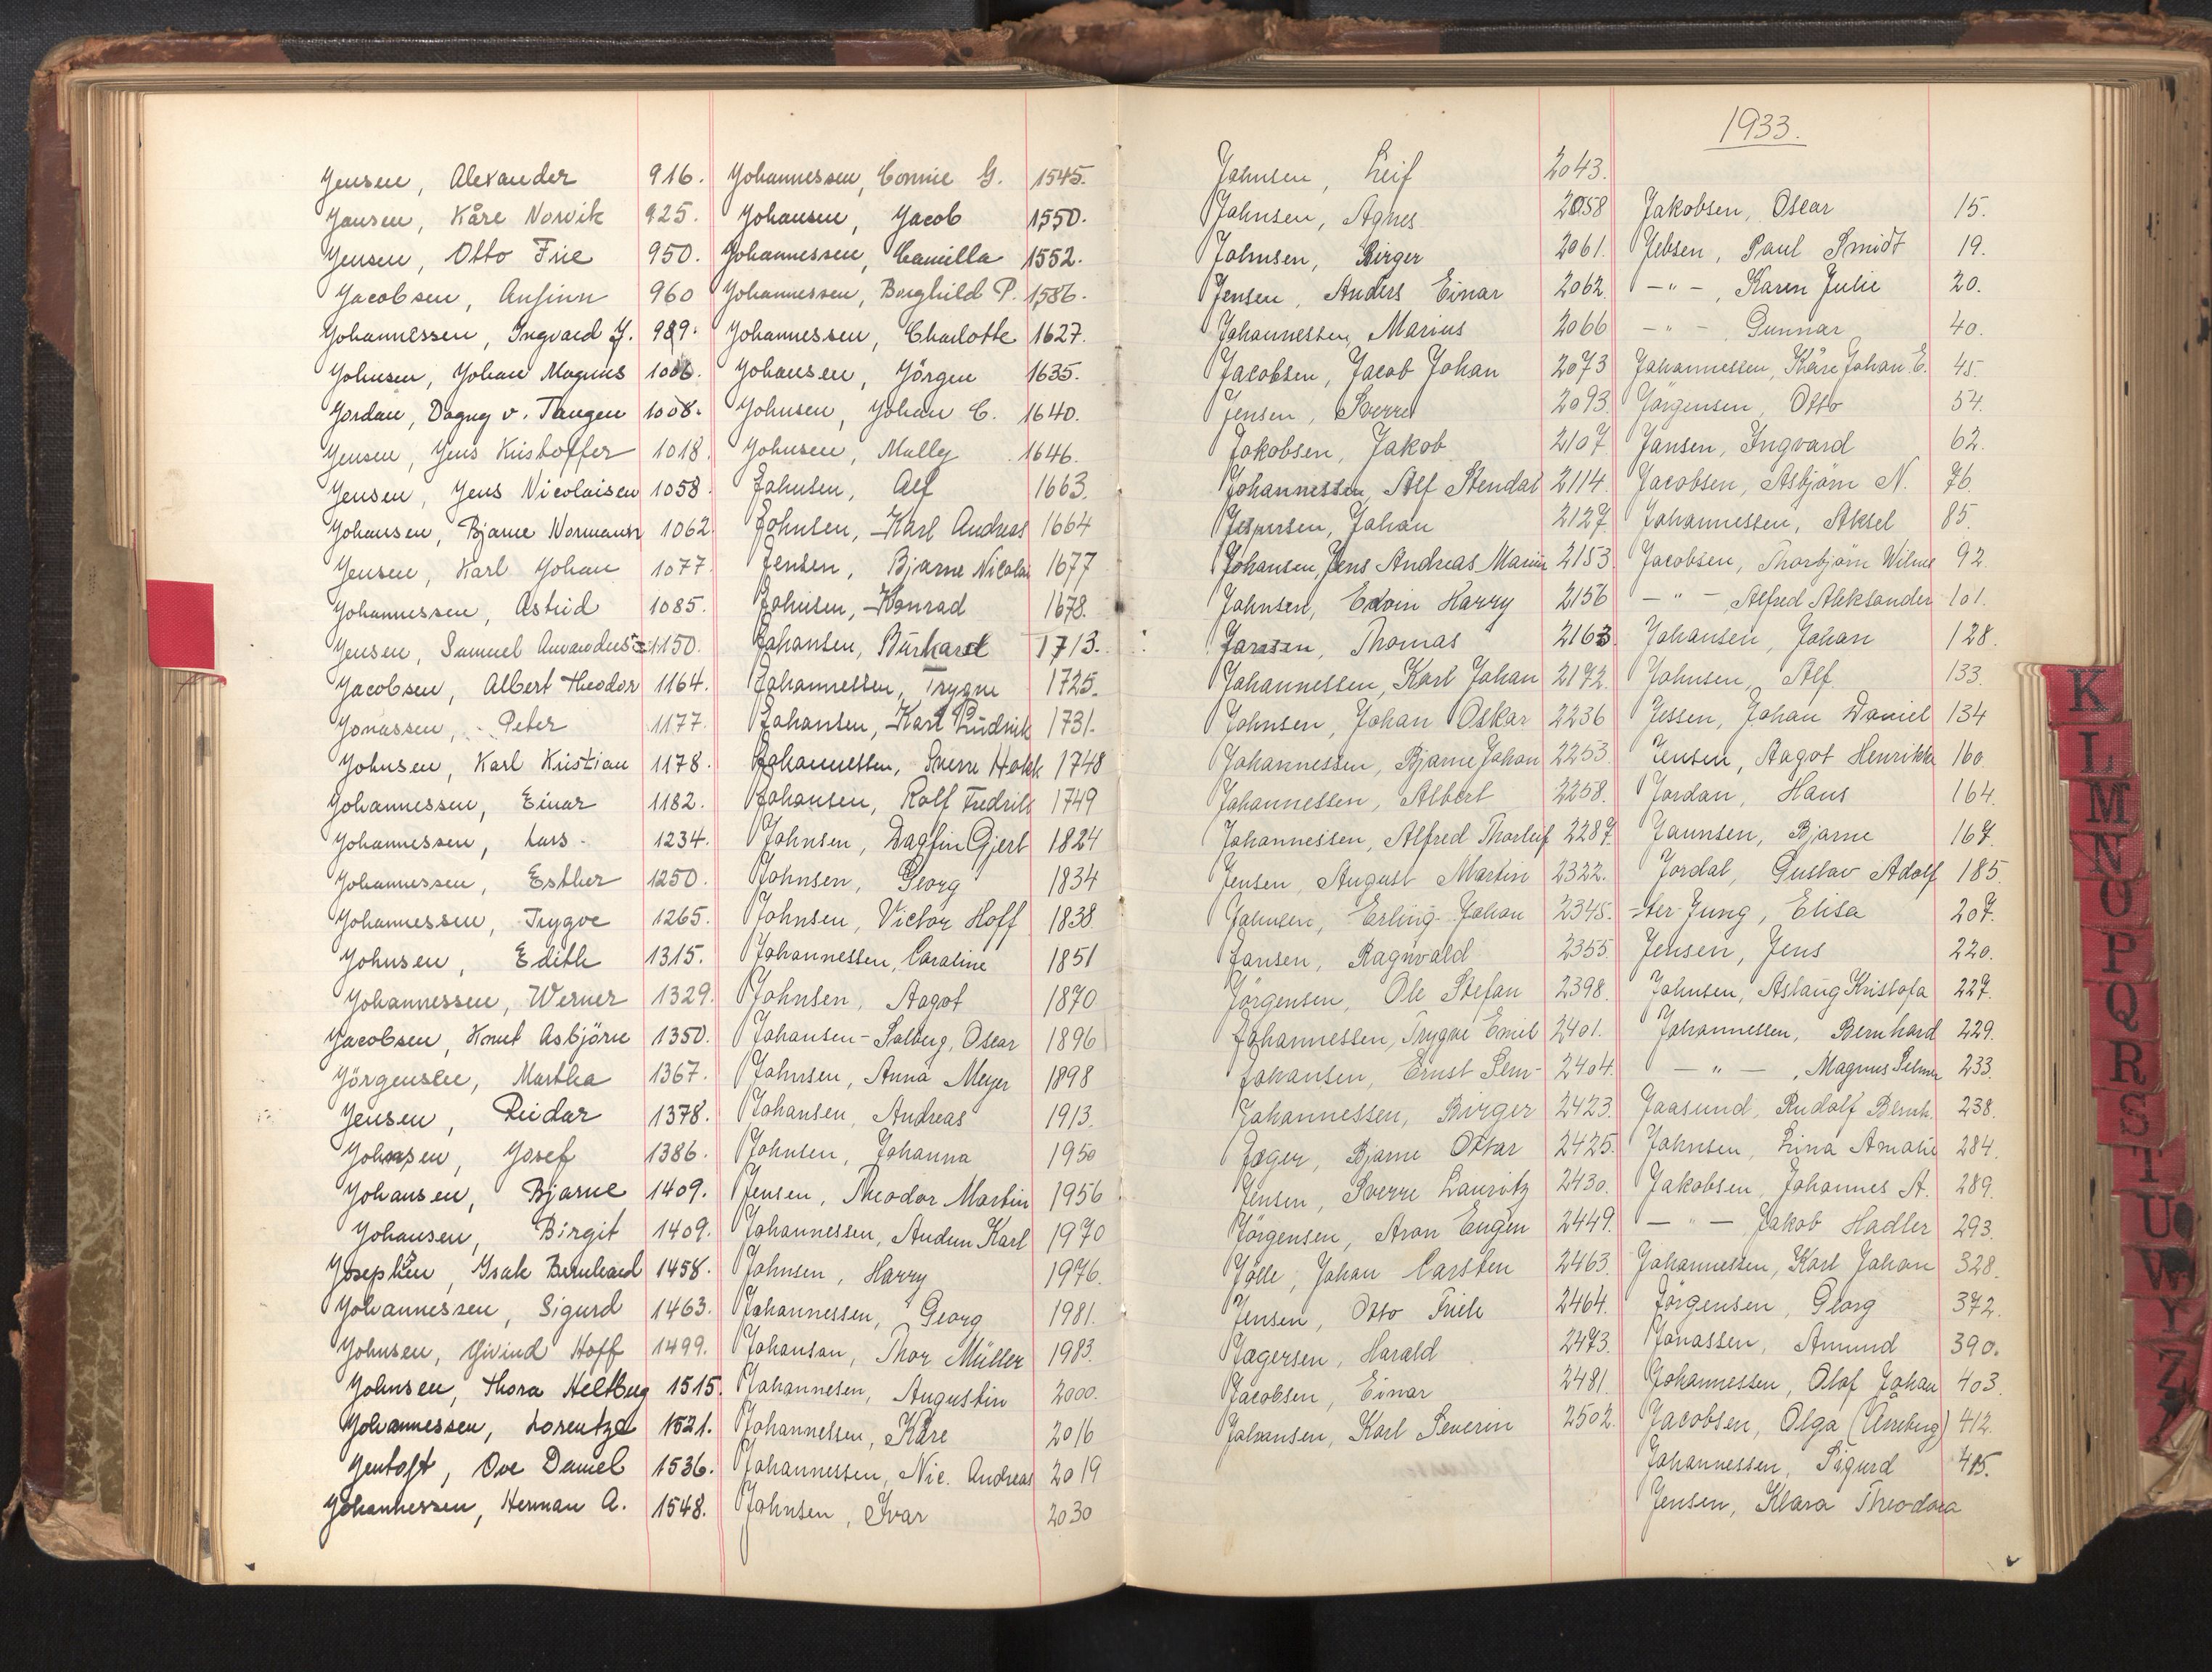 Jensen, Alexander 916.
Jansen, Kåre Norvik 925.
Jensen, Otto Frie 950.
Jacobsen, Anfinn 960
Johannessen, Ingvard J. 989.
Johnsen, Johan Magnus 1006.
Jordan, Dagny v. Tangen 1008.
Jensen, Jens Kristoffer 1018.
Jensen, Jens Nicolaisen 1058.
Johansen, Bjarne Wormann 1062.
Jensen, Karl Johan 1077.
Johannessen, Astrid 1085.
Jensen, Samuel 1150.
Jacobsen, Albert Theodor 1164.
Jonassen, Peter 1177.
Johnsen, Karl Kristian 1178.
Johannessen, Einar 1182.
Johannessen, Lars 1234.
Johannessen, Esther 1250.
Johannessen, Trygve 1265.
Johnsen, Edith 1315.
Johannessen, Werner 1329.
Jacobsen, Knut Asbjörn 1350.
Jörgensen, Martha 1367.
Jensen, Reidar 1378.
Johnsen, Josef 1386.
Johansen, Bjarne 1409.
Johansen, Birgit 1409.
Josephsen, Isak Bernhard 1458.
Johannessen, Sigurd 1463.
Johnsen, Öivind Hoff 1499.
Johnsen, Thora Heltberg 1515.
Johannessen, Lorentze 1521.
Jentoft, Ove Daniel 1536.
Johannessen, Herman A. 1548.
Johannessen, Connie G. 1545.
Johansen, Jacob 1550.
Johannessen, Camilla 1552.
Johannessen, Borghild P. 1586.
Johannessen, Charlotte 1627.
Johansen, Jörgen 1635.
Johnsen, Johan C. 1640.
Johnsen, Mally 1646.
Johnsen, Alf 1663.
Johnsen, Karl Andreas 1664
Jensen, Bjarne Nicolai 1677
Johnsen, Konrad 1678.
Johansen, Burhard 1713.
Johannessen, Trygve 1725.
Johansen, Karl Ludvik 1731.
Johannessen, Sverre Holck 1748
Johansen, Rolf Fredrik 1749
Johnsen, Dagfin Gjert 1824
Johnsen, Georg 1834
Johnsen, Victor Hoff 1838.
Johannessen, Caroline 1851
Johnsen, Aagot 1870
Johansen-Solberg, Oscar 1896
Johnsen, Anna Meyer 1898
Johansen, Andreas 1913.
Johnsen, Johanna 1950
Jensen, Theodor Martin 1956
Johannessen, Audun Karl 1970
Johnsen, Harry 1976.
Johannessen, Georg 1981.
Johansen, Thor Müller 1983.
Johannesen, Augustin 2000.
Johannessen, Kåre 2016
Johannessen, Nic. Andreas 2019
Johnsen, Ivar 2030
Johnsen, Leif 2043.
Johnsen, Agnes 2058
Johnsen, Birger 2061.
Jensen, Anders Einar 2062.
Johannessen, Marius 2066
Jacobsen, Jacob Johan 2073
Jensen, Sverre 2093.
Jakobsen, Jakob 2107
Johannessen, Alf Stendal 2114.
Jespersen, Johan 2127.
Johansen, Jens Andreas Marius 2153.
Johnsen, Edvin Harry 2156
Jansen, Thomas 2163
Johannessen, Karl Johan 2192.
Johnsen, Johan Oskar 2236
Johannessen, Bjarne Johan 2253.
Johannessen, Albert 2258.
Johannessen, Alfred Thorleif 2287.
Jensen, August Martin 2322.
Johnsen, Erling Johan 2345.
Jansen, Ragnvald 2355.
Jörgensen, Ole Stefan 2398.
Johannessen, Trygve Emil 2401.
Johansen, Ernst Sem- 2404.
Johannessen, Birger 2423.
Jæger, Bjarne Ottar 2425.
Jensen, Sverre Lauritz 2430.
Jörgensen, Aron Eugen 2449.
Jölle, Johan Carsten 2463.
Jensen, Otto Frich 2464.
Jægersen, Harald 2473.
Jacobsen, Einar 2481.
Johansen, Karl Severin 2502.
1933.
Jakobsen, Oscar 15.
Jebsen, Paul Smidt 19.
—"—, Karen Julie 20.
—"— Gunnar 40.
Johannessen, Kåre Johan E. 45.
Jörgensen, Otto 54.
Jansen, Ingvard 62.
Jacobsen, Asbjörn N. 76.
Johannessen, Aksel 85.
Jacobsen, Thorbjörn Wilme 92.
—"— Alfred Aleksander 101.
Johansen, Johan 128.
Johnsen, Alf 133.
Jessen, Johan Daniel 134
Jensen, Aagot Henrikke 160.
Jordan, Hans 164.
Jaunsen, Bjarne 167.
Jordal, Gustav Adolf 185.
ter Jung, Elisa 207.
Jensen, Jens 220.
Johnsen, Aslaug Kristofa 227.
Johannessen, Bernhard 229.
—"—, Magnus Selmer 233.
Jaasund, Rudolf Bernh. 238.
Johnsen, Lina Amalie 284.
Jakobsen, Johannes A. 289.
—"— Jakob Hadler 293.
Johannessen, Karl Johan 328.
Jörgensen, Georg 372.
Jonassen, Amund 390.
Johannessen, Olaf Johan 403.
Jacobsen, Olga 412.
Johannessen, Sigurd 415.
Jensen, Klara Theodora
K
L
M
N
O
P
Q
R
S
T
U
W
Y
Z